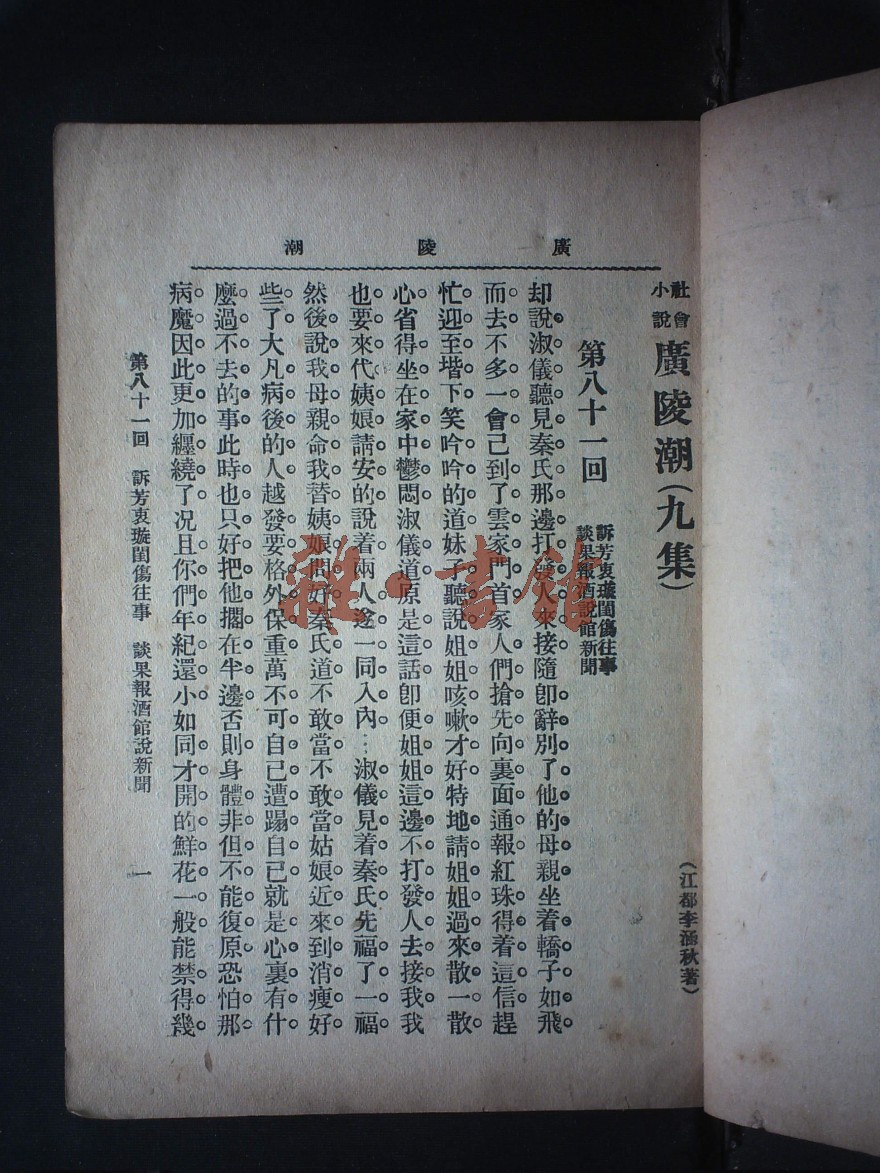 廣陵潮
社會
小說
廣陵潮(九集)
(江都李涵秋著)
第八十一回
訴芳衷璇閨傷往事
談果報酒說館新聞
却說淑儀聽見秦氏那邊打發人來接隨卽辭別了他的母親坐着轎子如飛
而去不多一會已到了雲家門首家人們搶先向裏面通報紅珠得着這信趕
忙迎至堦下笑吟吟的道妹子聽說姐姐咳嗽才好特地請姐姐過來散一散
心省得坐在家中鬱悶淑儀道原是這話卽便姐姐這邊不打發人去接我我
也要來代姨娘請安的說着兩人遂一同入內⋯淑儀見着秦氏先福了一福
然後說我母親命我替姨娘問好秦氏道不敢當不敢當姑娘近來到消瘦好
些了大凡病後的人越發要格外保重萬不可自己遭蹋自己就是心裏有什
麼過不去的事此時也只好把他擱在半邊否則身體非但不能復原恐怕那
病魔因此更加纏繞了况且你們年紀還小如同才開的鮮花一般能禁得幾
第八十一回 訴芳衷璇閨傷往事 談果報酒館說新聞 一
雜·書館